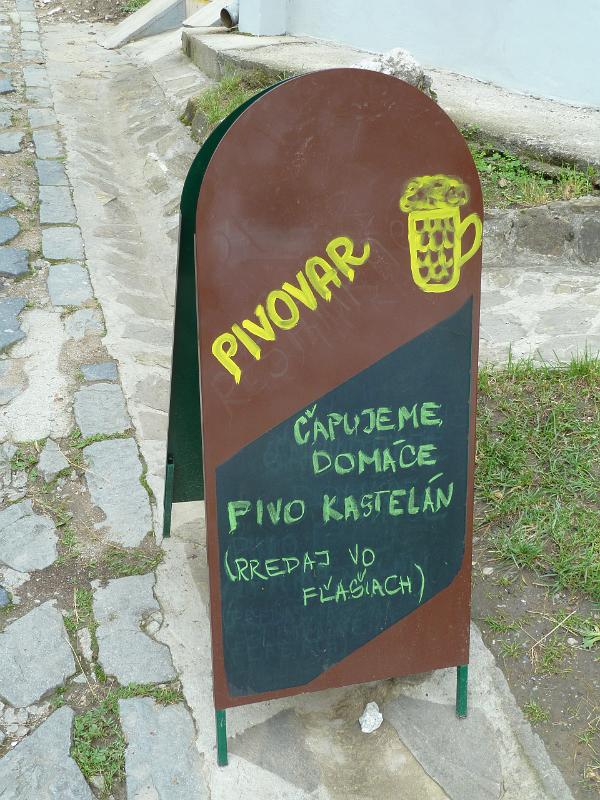 PIVOVAR
ČAPUJEME
DOMÁCE
PIVO KASTELÁN
(PREDAJ VO
FĽAŠIACH)